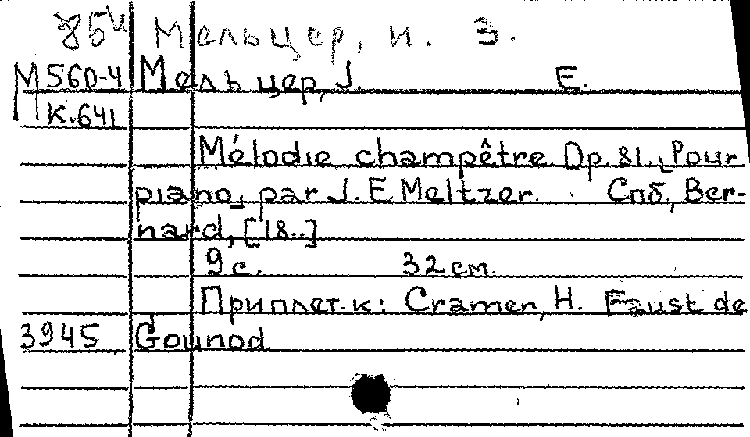 85и Мельцер, И. З.
М 560-4 Мельцер, J. E.
к.641
Mélodie champêtre Op. 81. Pour
piano, par J. E Meltzer. Спб, Ber-
nard, [18..]
9 с. 32 см.
Приплет. к: Cramer, H. Faust de
3945 Gounod